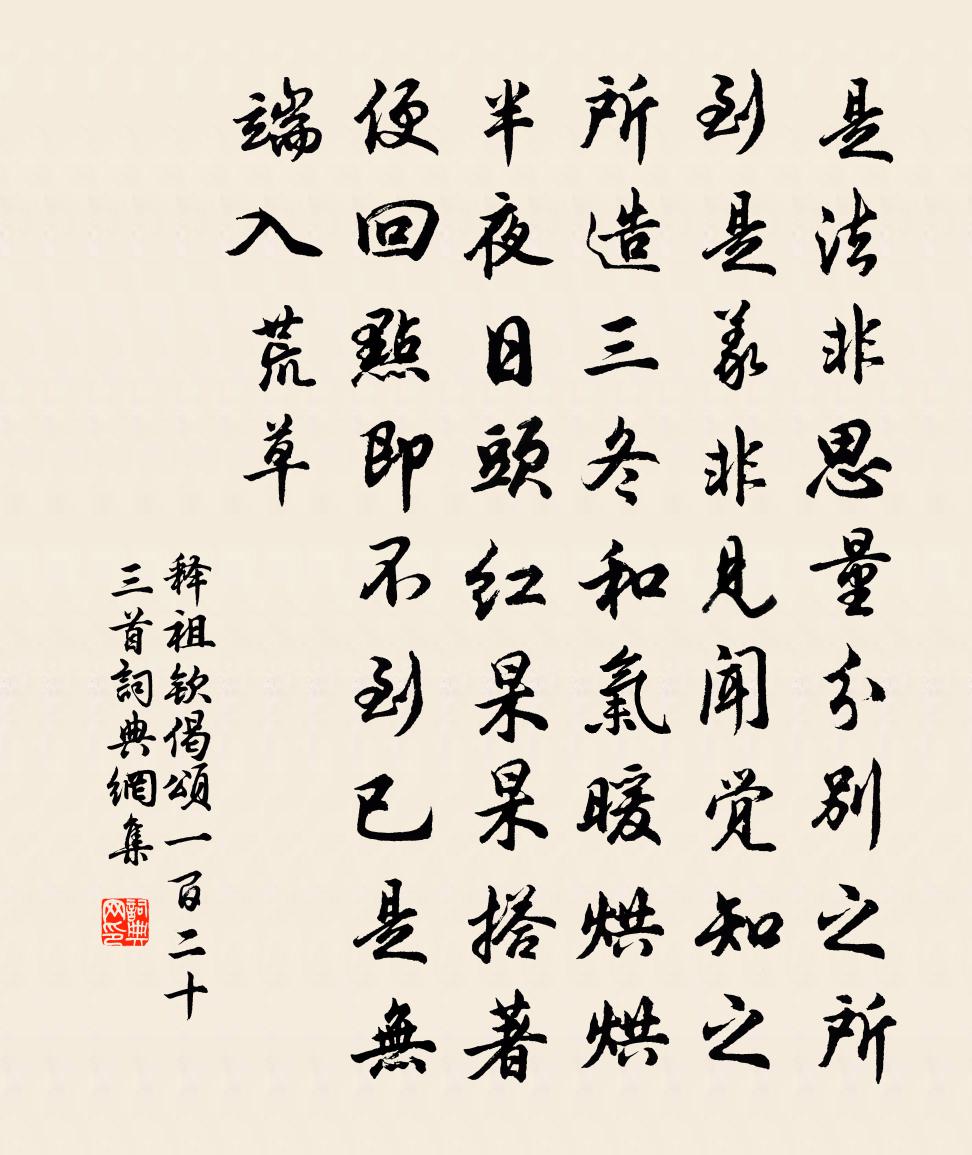 是法非思量分別之所
到是義非見聞觉知之
所造三冬和氣暖烘烘
半夜日頭红杲杲搭著
便回點即不到已是無
端入荒草
释祖钦偈頌一百二十
三首詞典網集
詞典
网印